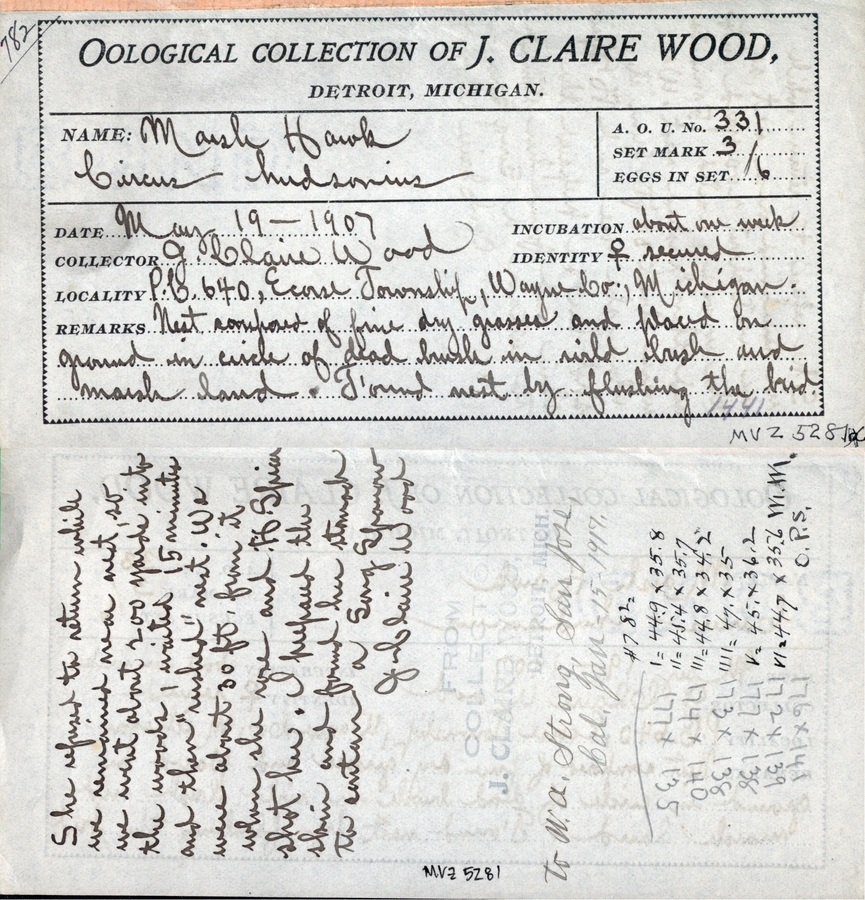 782
OOLOGICAL COLLECTION OF J. CLAIRE WOOD,
DETROIT, MICHIGAN.
NAME: Marsh Hawk
Circus hudsonius
A. O. U. No. 331
SET MARK 3
EGGS IN SET 1/6
DATE May 19 - 1907
INCUBATION about one week
COLLECTOR J. Claire Wood
IDENTITY ♀ secured
LOCALITY P.C. 640, Ecorse Township, Wayne Co., Michigan.
REMARKS Nest composed of fine dry grasses and placed on
ground in circle of dead brush in wild brush and
marsh land. Found nest by flushing the bird.
1441
MVZ 5281
She refused to return while
we remained near nest, so
we went about 200 yards into
the woods, waited 15 minutes
and then "rushed" nest. We
were about 30 ft. from it
when she rose and H. Spicer
shot her. I prepared the
skin and found her stomach
to contain a Song Sparrow
J. Claire Wood
FROM
COLLECTION
J. CLAIRE WOOD,
DETROIT, MICH.
To W. A. Strong, San Jose,
Cal, Jan-15-1917.
#782
I = 44.9 x 35.8
II = 45.4 x 35.7
III = 44.8 x 34.2
IIII = 47. x 35
V = 45. x 36.2
VI = 44.7 x 35.6 M.M.
O.P.S.
177 x 135
174 x 140
173 x 138
177 x 136
172 x 139
176 x 141
MVZ 5281